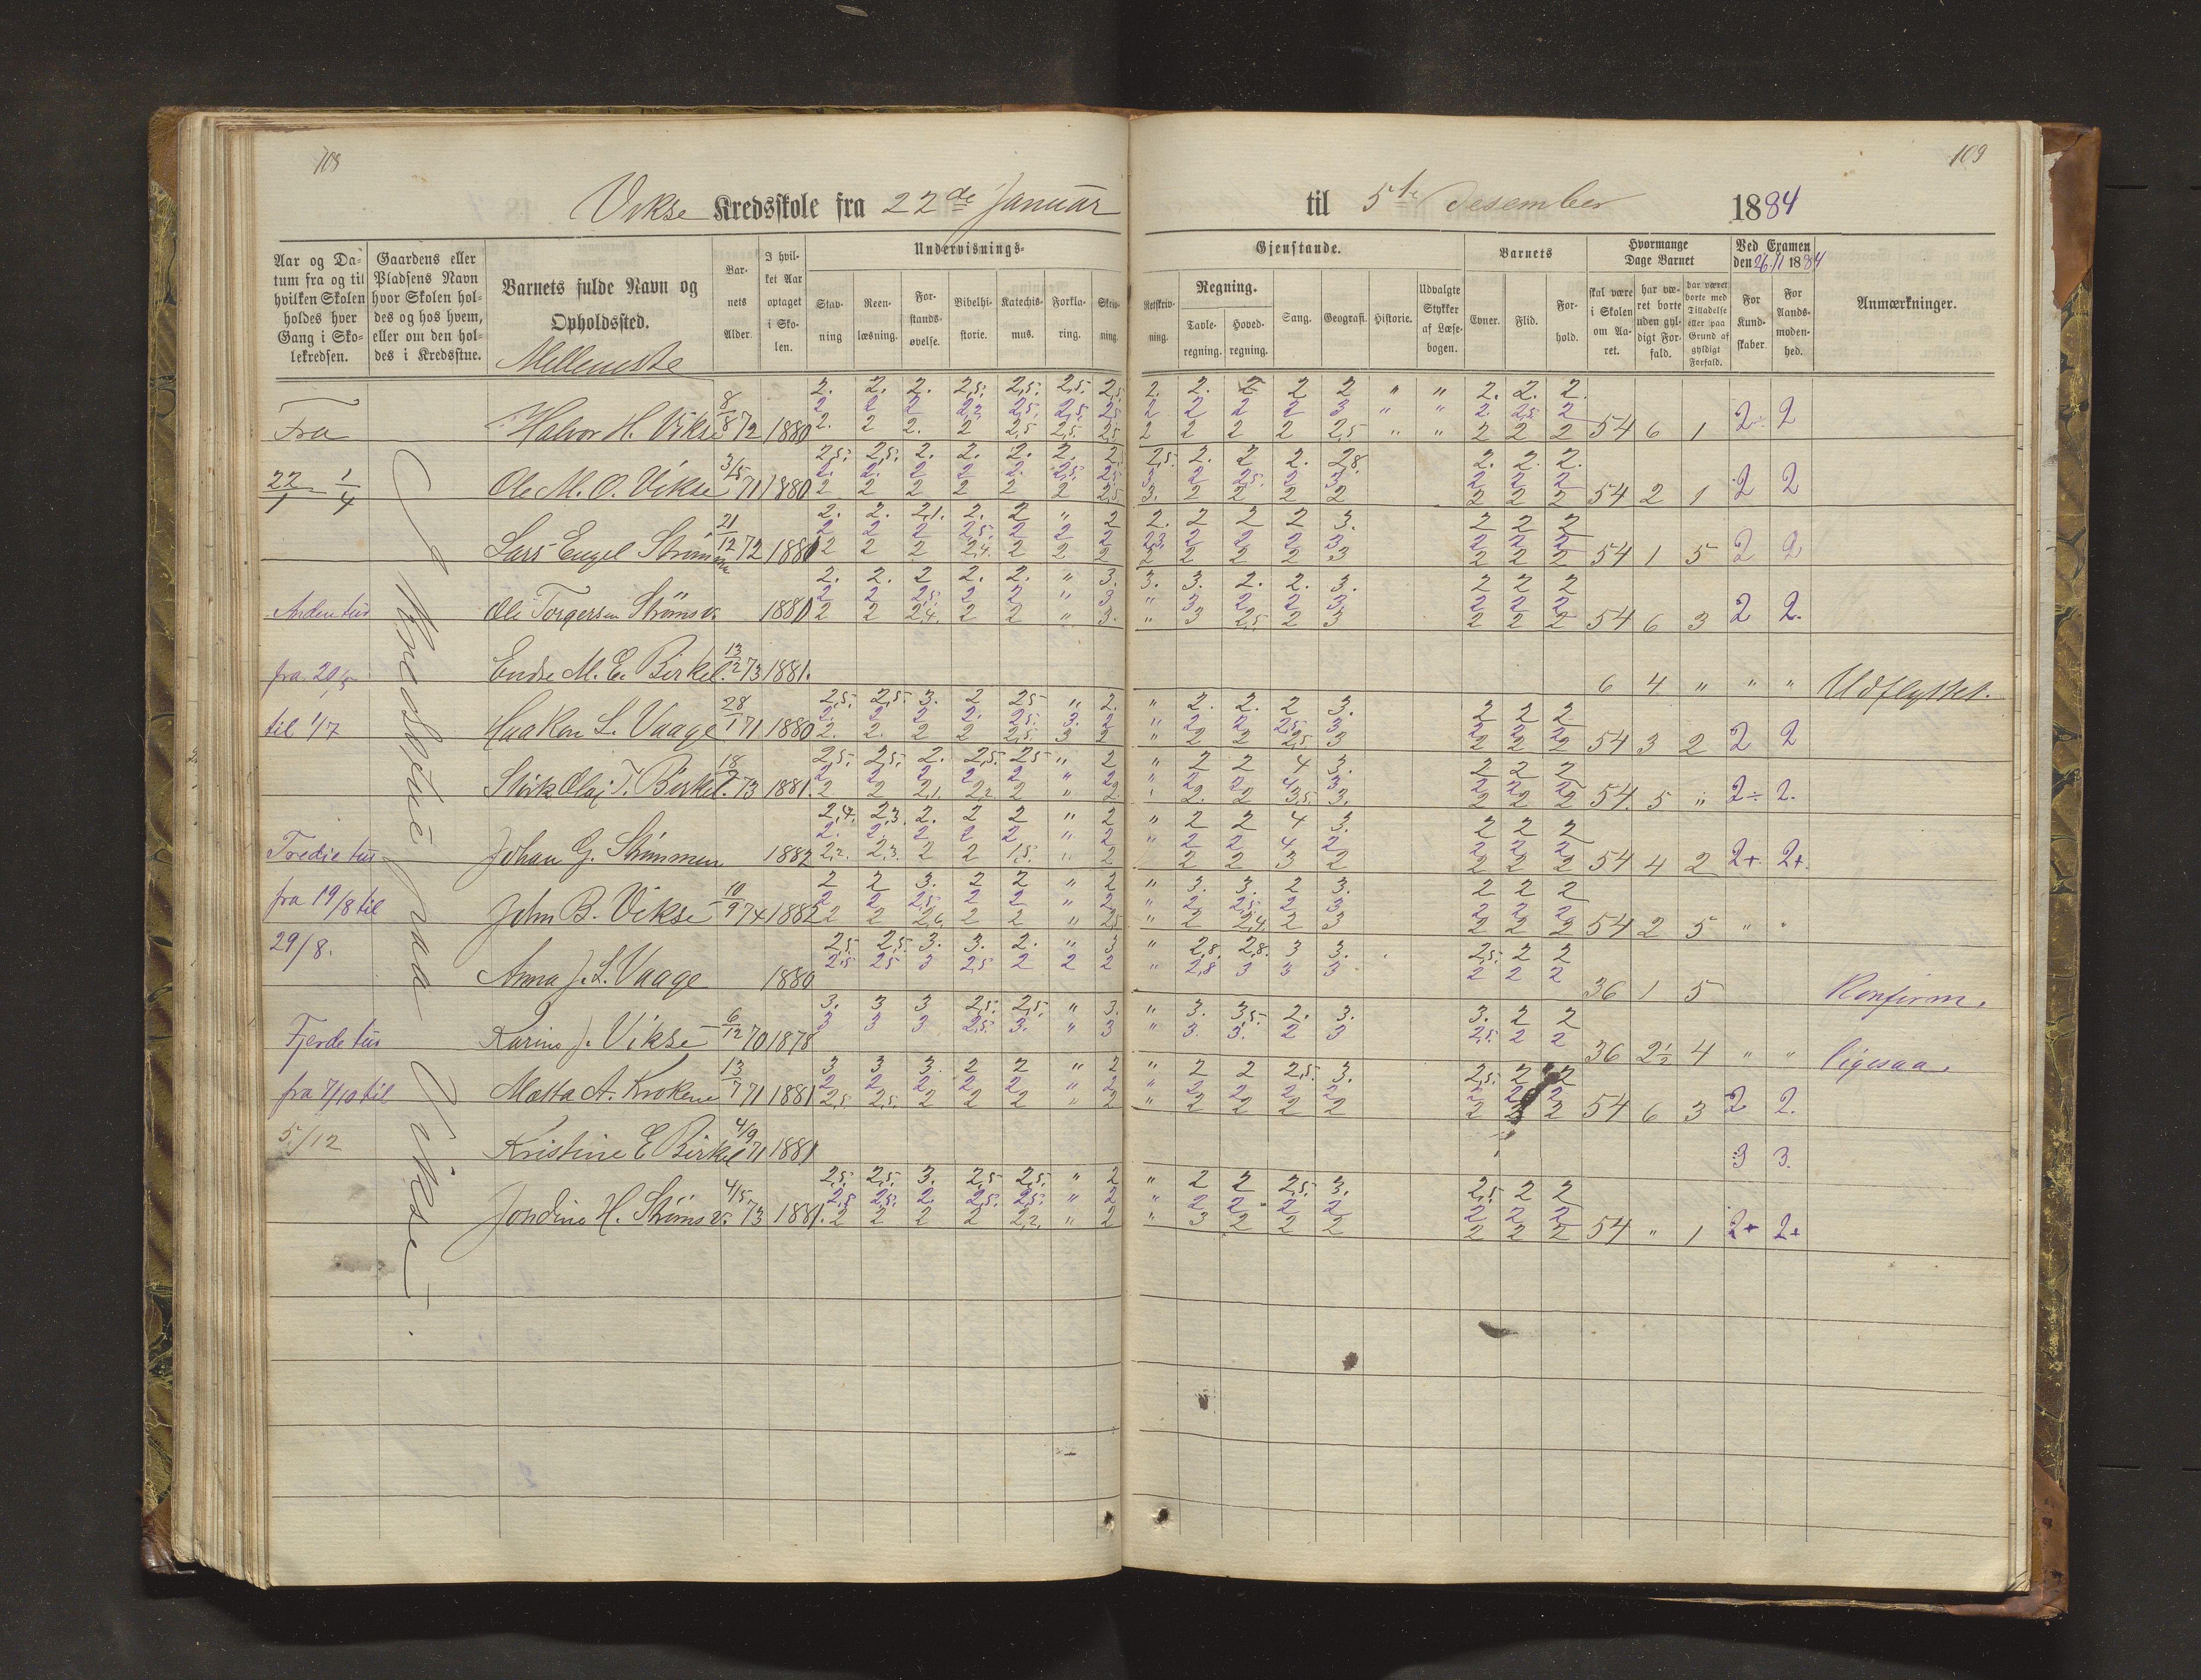 108
109
Vikse Kredsskole fra 22de Januar til 5te Desember 1884
Aar og Datum fra og til hvilken Skolen holdes hver Gang i Skolekredsen.
Gaardens eller Pladsens Navn hvor Skolen holdes og hos hvem, eller om den holdes i Kredsstue.
Barnets fulde Navn og Opholdssted.
Barnets Alder.
I hvilket Aar optaget i Skolen.
Undervisnings-Gjenstande.
Stavning
Reenlæsning.
Forstandsøvelse.
Bibelhistorie.
Katechismus.
Forklaring.
Skrivning.
Retskrivning.
Regning.
Tavleregning.
Hovedregning.
Sang.
Geografi.
Historie.
Udvalgte Stykker af Læsebogen.
Barnets
Evner.
Flid.
Forhold.
Hvormange Dage Barnet
skal være i Skolen om Aaret.
har været borte uden gyldigt Forfald.
har været borte med Tilladelse eller paa Grund af gyldigt Forfald.
Ved Examen den 26.11 1884
For Kundskaber.
For Aandsmodenhed.
Anmærkninger.
Mellemste
Fra
22/1 1/4
Anden tur
fra 20/5
til 1/7
Tredie tur
fra 19/8 til
29/8.
Fjerde tur
fra 7/10 til
5/12
paa Vikse.
2. 2. 2. 2,5. 2,5. 2,5. 2,5. 2. 2. 2 2 2 " " 2. 2. 2.
2 2 2 2,2 2,5. 2,5. 2,5 2 2 2 2 3 " " 2. 2,5 2
Halvor H. Vikse 8/8 72 1880 2. 2 2. 2 2,5 2,5. 2,5 2 2 2 2 2,5 " " 2 2 2 54 6 1 2÷ 2
2,5. 2,5. 2. 2. 2. 2. 2,5 2,5. 2. 2 2. 2,8. 2. 2. 2.
Ole M. O. Vikse 3/5 71 1880 2 2 2 2 2 2 2,5 3. 2 2 2 2 2 2 2 54 2 1 2 2
2. 2. 2,1. 2. 2 " 2 2. 2 2 2 3. 2 2 2
Lars Engel Strømme 21/12 72 1880 2 2 2 2,4. 2 2 2 2 2 2 2 3 2 2 2 54 1 5 2 2
2. 2. 2 2. 2. " 3. 3. 3. 2. 2. 3. 2 2 2
Ole Torgersen Strømsv. 1881 2 2 2,4. 2 2 " 3. " 3 2,5 2 3 2 2 2 54 6 3 2 2.
Endre M. E. Birkel. 13/2 73 1881. 6 4 " " " Udflyttet.
2,5. 2,5. 3. 2 2,5 " 2. " 2. 2. 2 3. 2 2 2
Haakon L. Vaage 28/1 71 1880 2. 2. 2 2 2,5 3 2 " 2 2 2,5 3 2 2 2 54 3 2 2 2
2,5. 2,5. 2. 2,5. 2,5 " 2 " 2 2 4 3. 2 2 2
Størk Olaj T. Birkel. 73 1881. 2 2 2,1. 2,2 2 " 2 " 2. 2 3,5 3. 2 2 2 54. 5 " 2÷ 2.
2,4. 2,3. 2. 2 2 " 2 " 2 2 4 3. 2 2 2
Johan G. Strømmen 1882 2,2. 2,3. 2 2 1,5. " 2 2 2 3 2 2 2 2 54 4 2 2+ 2+.
2 2 3. 2 2 " 2 " 3. 3. 2 3. 2 2 2
John B. Vikse 10/9 74 1882 2 2 2,6 2 2 " 2,5 " 2 2,4 2 3 2 2 2 54 2 5 " "
2,5 2,5 3. 3. 2. " 3 " 2,8. 2,8. 3 3. 2,5. 2 2
2,5 2,5 3 2,5 2 2 2 " 2,8 3 3 3 2 2 2
Anna J. L. Vaage 1880 36 1 5 Konfirm.
3. 3 3 2,5. 2,5. " 3. " 3. 3,5. 2. 3. 3. 2 2
3 3 3 2,5. 3. " 3 " 3. 3. 2 3 2,5. 2 2
Karine J. Vikse 6/12 70 1878 36 2½ 4 " " ligesaa.
3 3 3. 2 2 " 2 " 2 2 2,5 3. 2,5. 2 2
Matta A. Krokene 13/7 71 1881 2,5 2,5. 2 2 2 " 2 " 2 2 2 2 2 2 2 54 6 3 2 2.
Kristine E Birkel 4/9 71 1881 3 3.
2,5. 2,5. 3. 2,5 2,5. " 2 " 2 2 2,5. 3. 2,5 2 2
2,5 2,5. 2. 2,5. 2,5. " 2 " 2 2 2 2 2 2 2
Jondine H. Strømsv. 4/5 73 1881. 2 2 2 2 2,2. " 2 " 3 2 2 2 2 2 2 54 " 1 2+ 2+